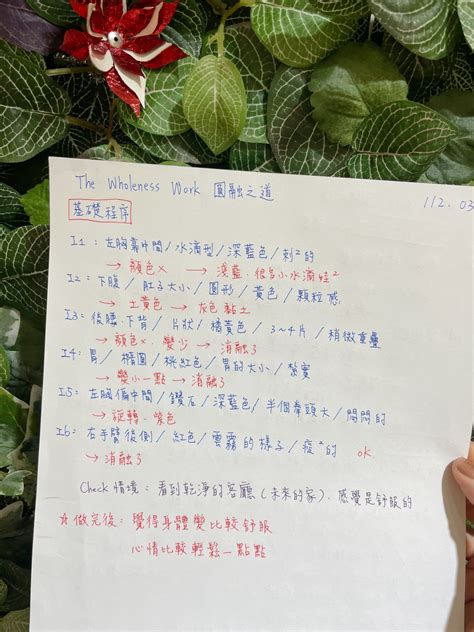 The Wholeness Work 圓融之道
112. 03
基礎程序
I1：左胸靠中間/水滴型/深藍色/刺²的
→ 顏色X → 淺藍.很多小水滴娃²
I2：下腹/肚子大小/圓形/黃色/顆粒感
→ 土黃色 → 灰色黏土
I3：後腰.下背/片狀/橘黃色/3~4片/稍微重疊
→ 顏色X. 變少 → 消融了
I4：胃/橢圓/桃紅色/胃的大小/紮實
→ 變小一點 → 消融了
I5：左胸偏中間/鑽石/深藍色/半個拳頭大/悶悶的
→ 旋轉.紫色
I6：右手臂後側/紅色/雲霧的樣子/痠²的 ok
→ 消融了
Check 情境：看到乾淨的客廳(未來的家).感覺是舒服的
☆做完後：覺得身體變比較舒服
心情比較輕鬆一點點